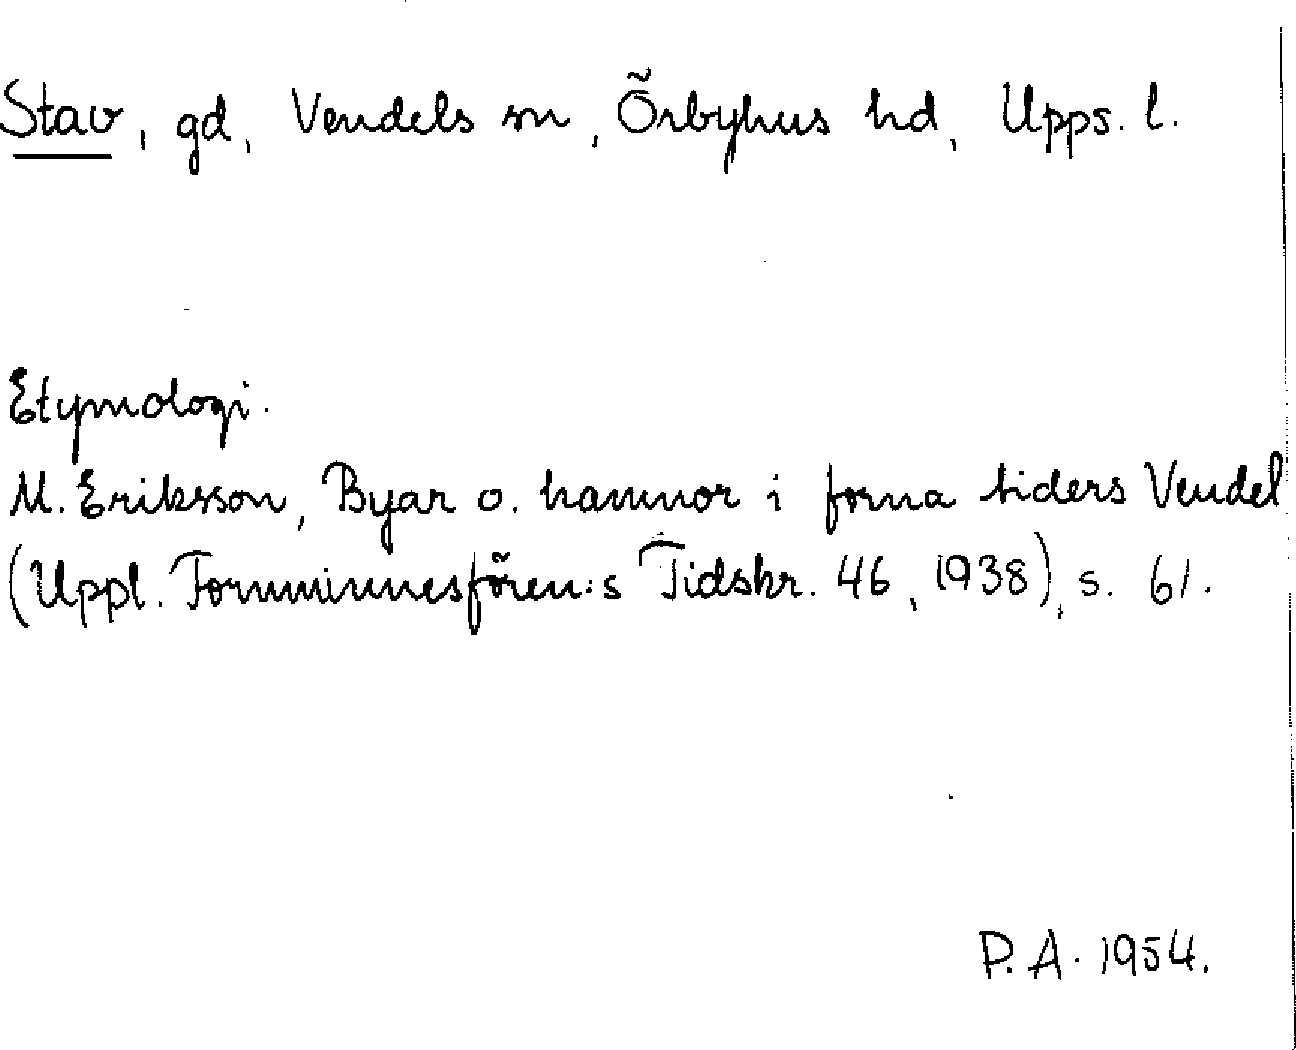 Stav, gd, Vendels sn, Örbyhus hd, Upps. l.
Etymologi.
M. Eriksson, Byar o. hamnor i forna tiders Vendel
(Uppl. Fornminnesfören:s Tidskr. 46, 1938), s. 61.
P. A. 1954.